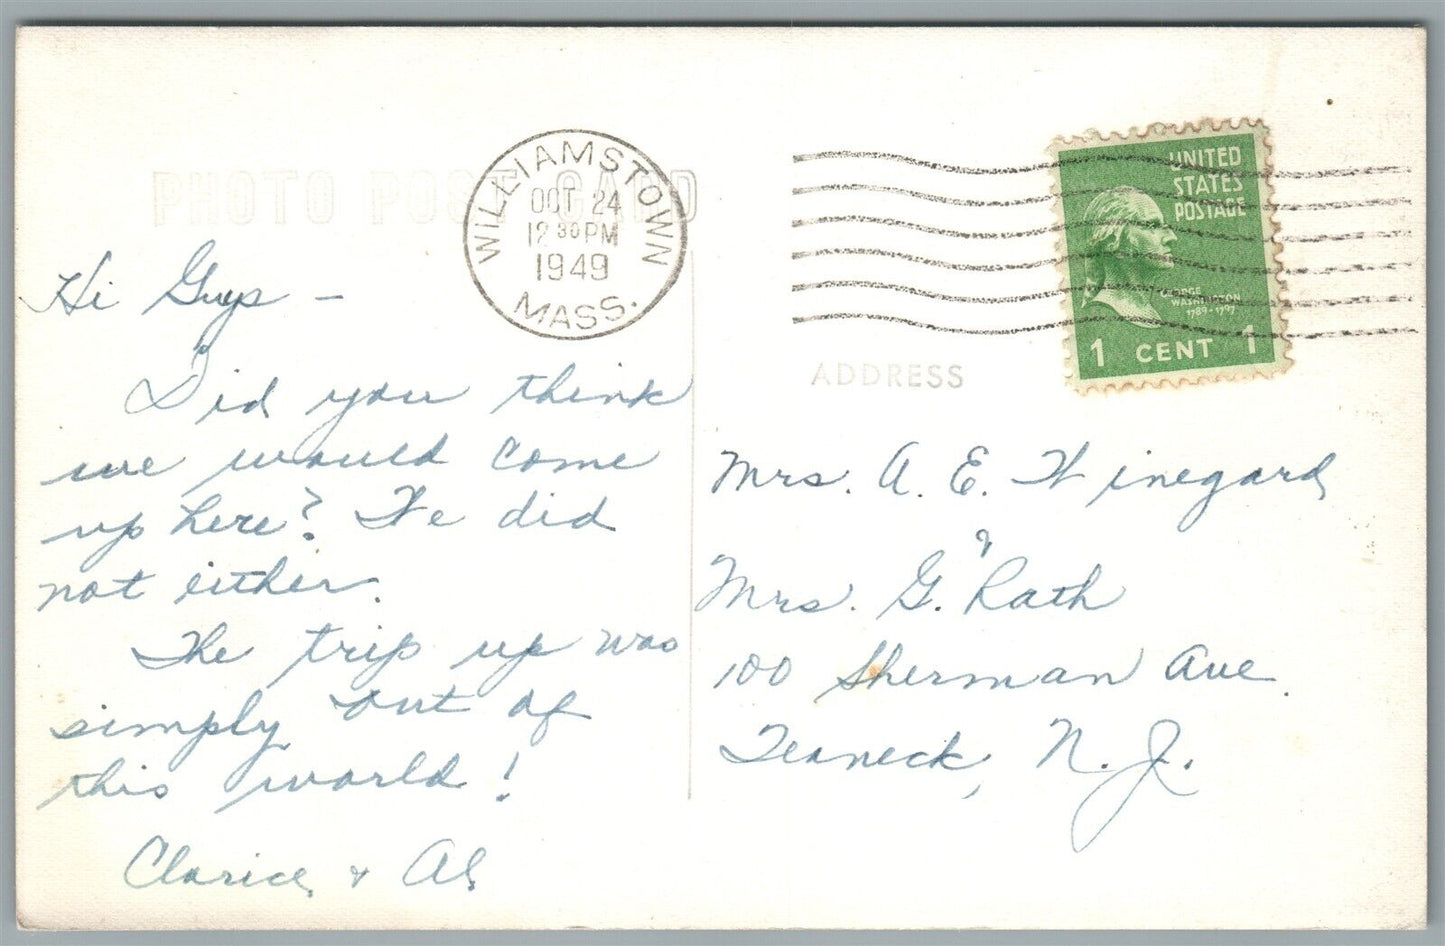 PHOTO POST CARD
WILLIAMSTOWN
OCT 24
12 30 PM
1949
MASS.
UNITED
STATES
POSTAGE
GEORGE
WASHINGTON
1789-1797
1 CENT 1
Hi Guys –
Did you think
we would come
up here? We did
not either.
The trip up was
simply out of
this world!
Clarice & Al
ADDRESS
Mrs. A. E. Winegard
&
Mrs. G. Rath
100 Sherman Ave.
Teaneck, N. J.